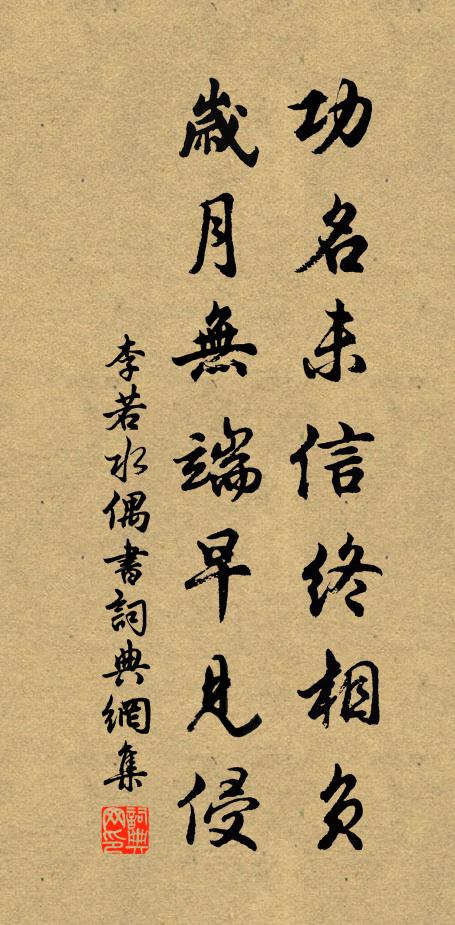 功名未信終相負
歲月無端早見侵
李若水偶書詞典網集
詞典網印